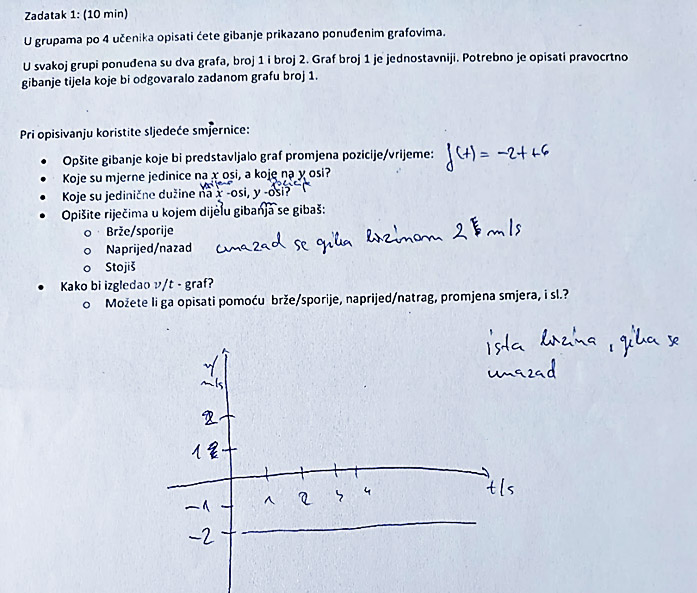 Zadatak 1: (10 min)
U grupama po 4 učenika opisati ćete gibanje prikazano ponuđenim grafovima.
U svakoj grupi ponuđena su dva grafa, broj 1 i broj 2. Graf broj 1 je jednostavniji. Potrebno je opisati pravocrtno
gibanje tijela koje bi odgovaralo zadanom grafu broj 1.
Pri opisivanju koristite sljedeće smjernice:
• Opšite gibanje koje bi predstavljalo graf promjena pozicije/vrijeme: f(t) = -2t+6
• Koje su mjerne jedinice na x osi, a koje na y osi?
vrijeme pozicija
• Koje su jedinične dužine na x -osi, y -osi?
• Opišite riječima u kojem dijelu gibanja se gibaš:
o Brže/sporije
o Naprijed/nazad unazad se giba brzinom 2 m/s
o Stojiš
• Kako bi izgledao v/t - graf?
o Možete li ga opisati pomoću brže/sporije, naprijed/natrag, promjena smjera, i sl.?
ista brzina, giba se
unazad
v/
m/s
2
1
1 2 3 4
t/s
-1
-2